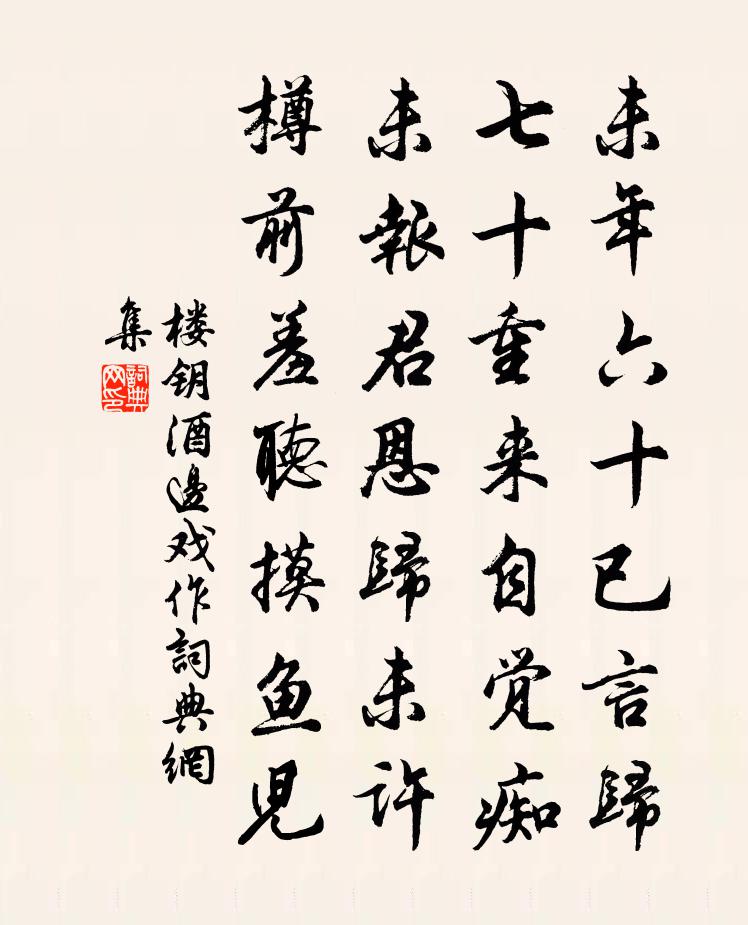 未年六十已言歸
七十重来自觉痴
未報君恩歸未许
樽前羞聽摸鱼児
楼钥酒邊戏作詞典網
集
詞典
网印